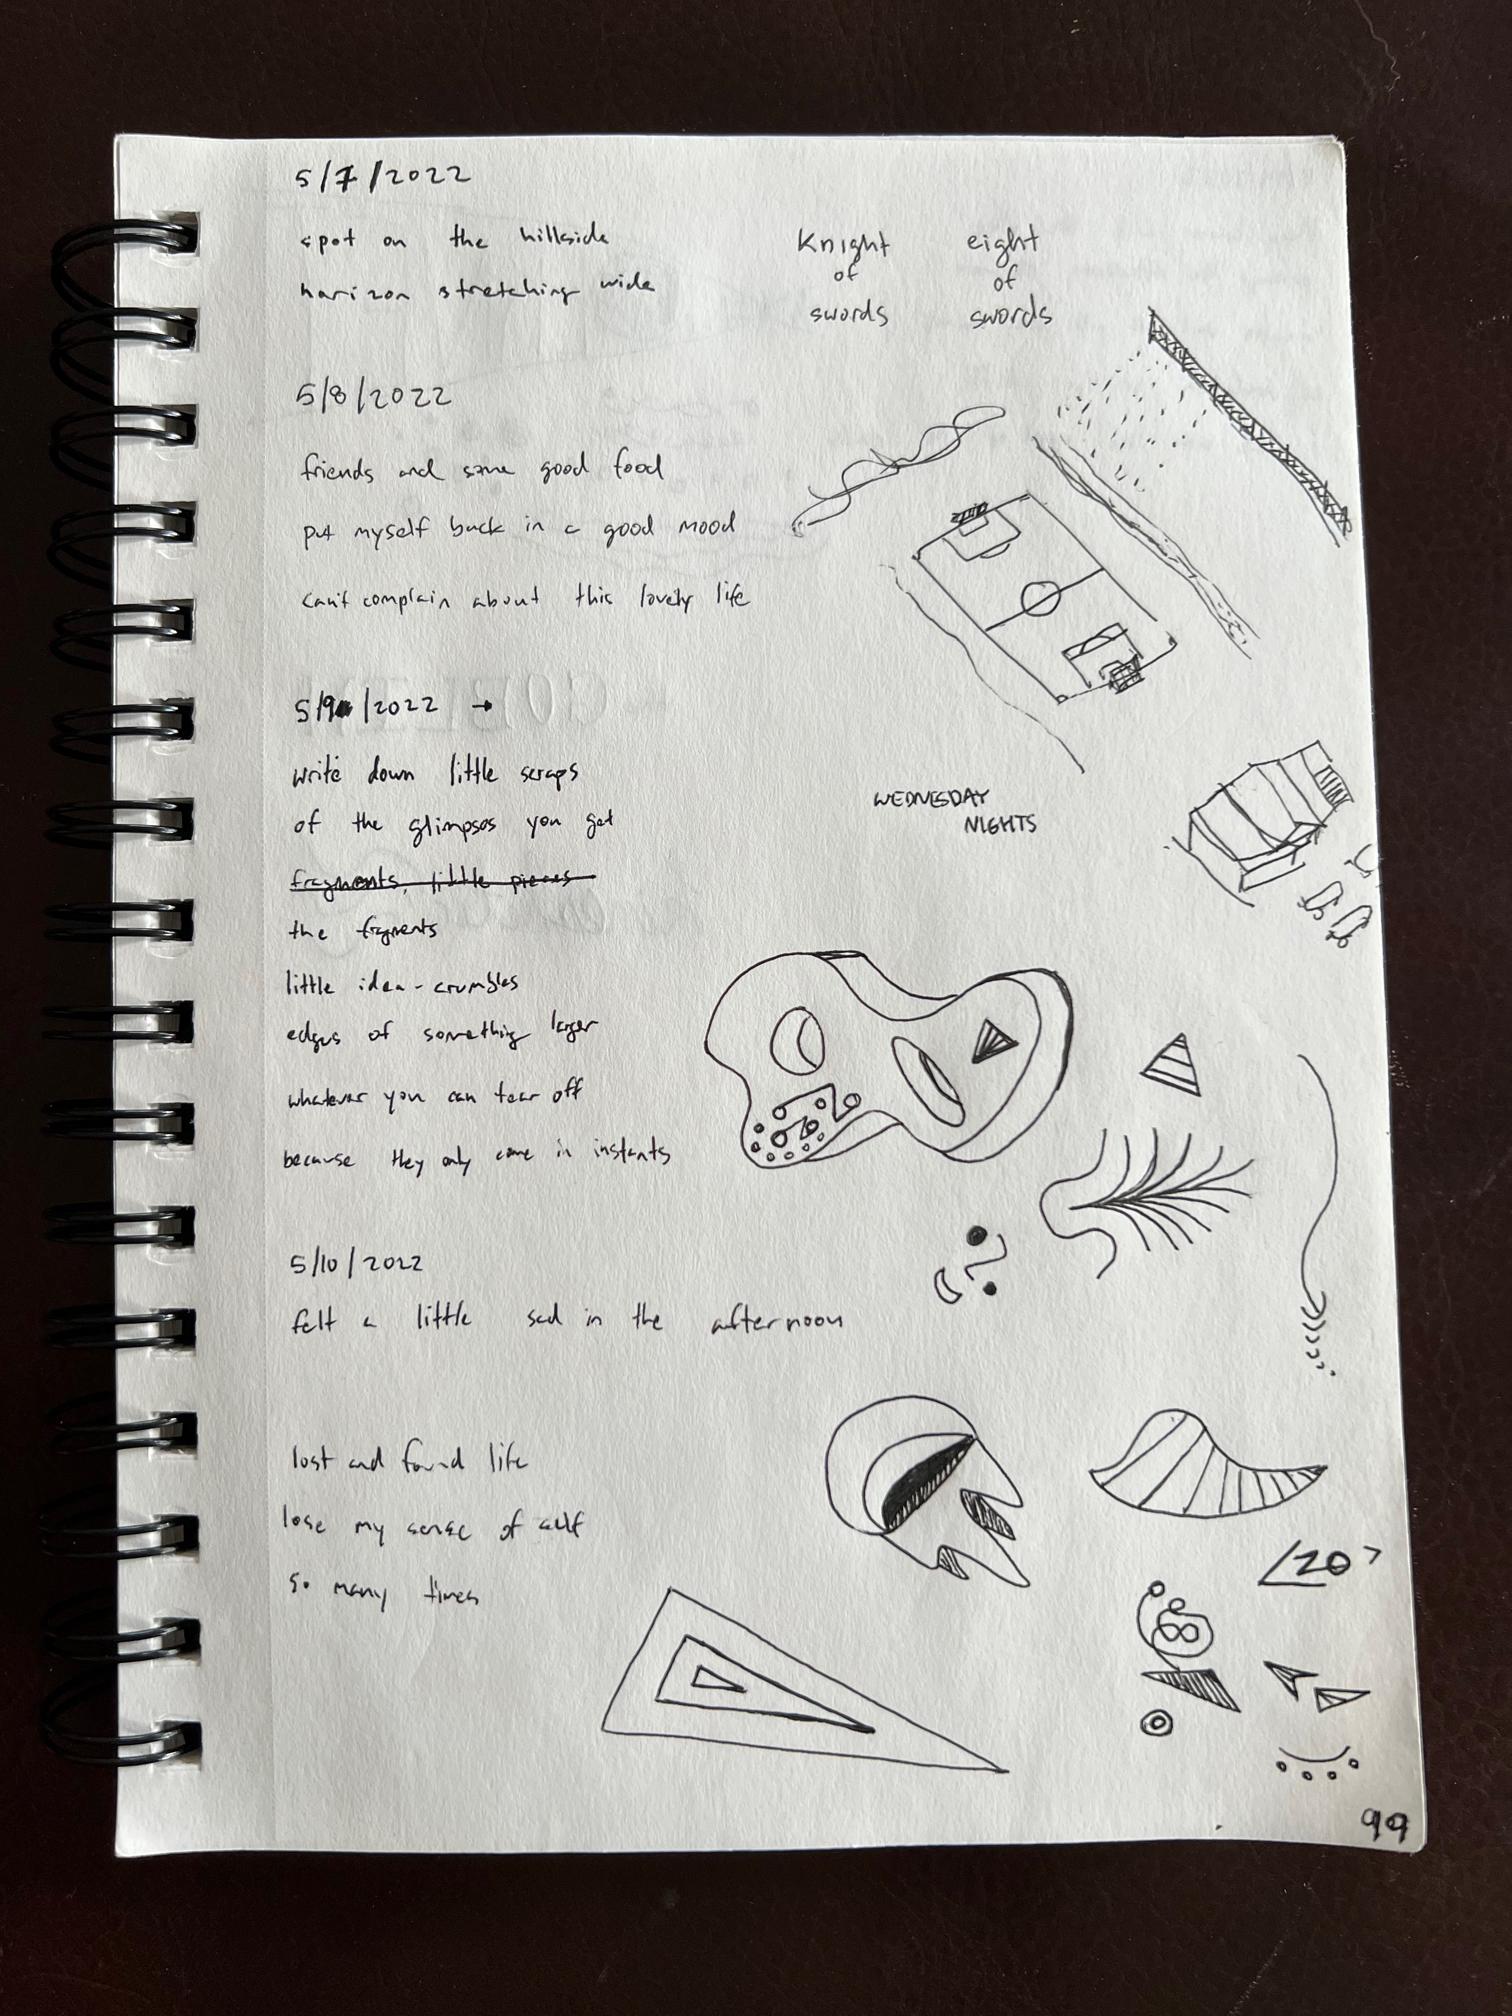 5/7/2022
spot on the hillside
horizon stretching wide
Knight
of
swords
eight
of
swords
5/8/2022
friends and some good food
put myself back in a good mood
can't complain about this lovely life
5/9/2022 →
write down little scraps
of the glimpses you get
fragments, little pieces
the fragments
little idea-crumbles
edges of something larger
whatever you can tear off
because they only come in instants
WEDNESDAY
NIGHTS
5/10/2022
felt a little sad in the afternoon
lost and found life
lose my sense of self
so many times
99